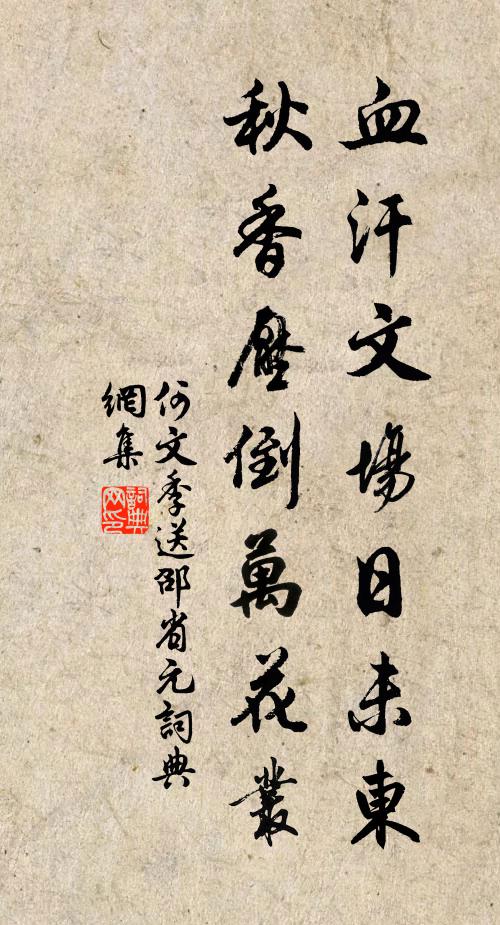 血汗文場日未東
秋香壓倒萬花叢
何文季送邵省元詞典
網集
詞典
网印